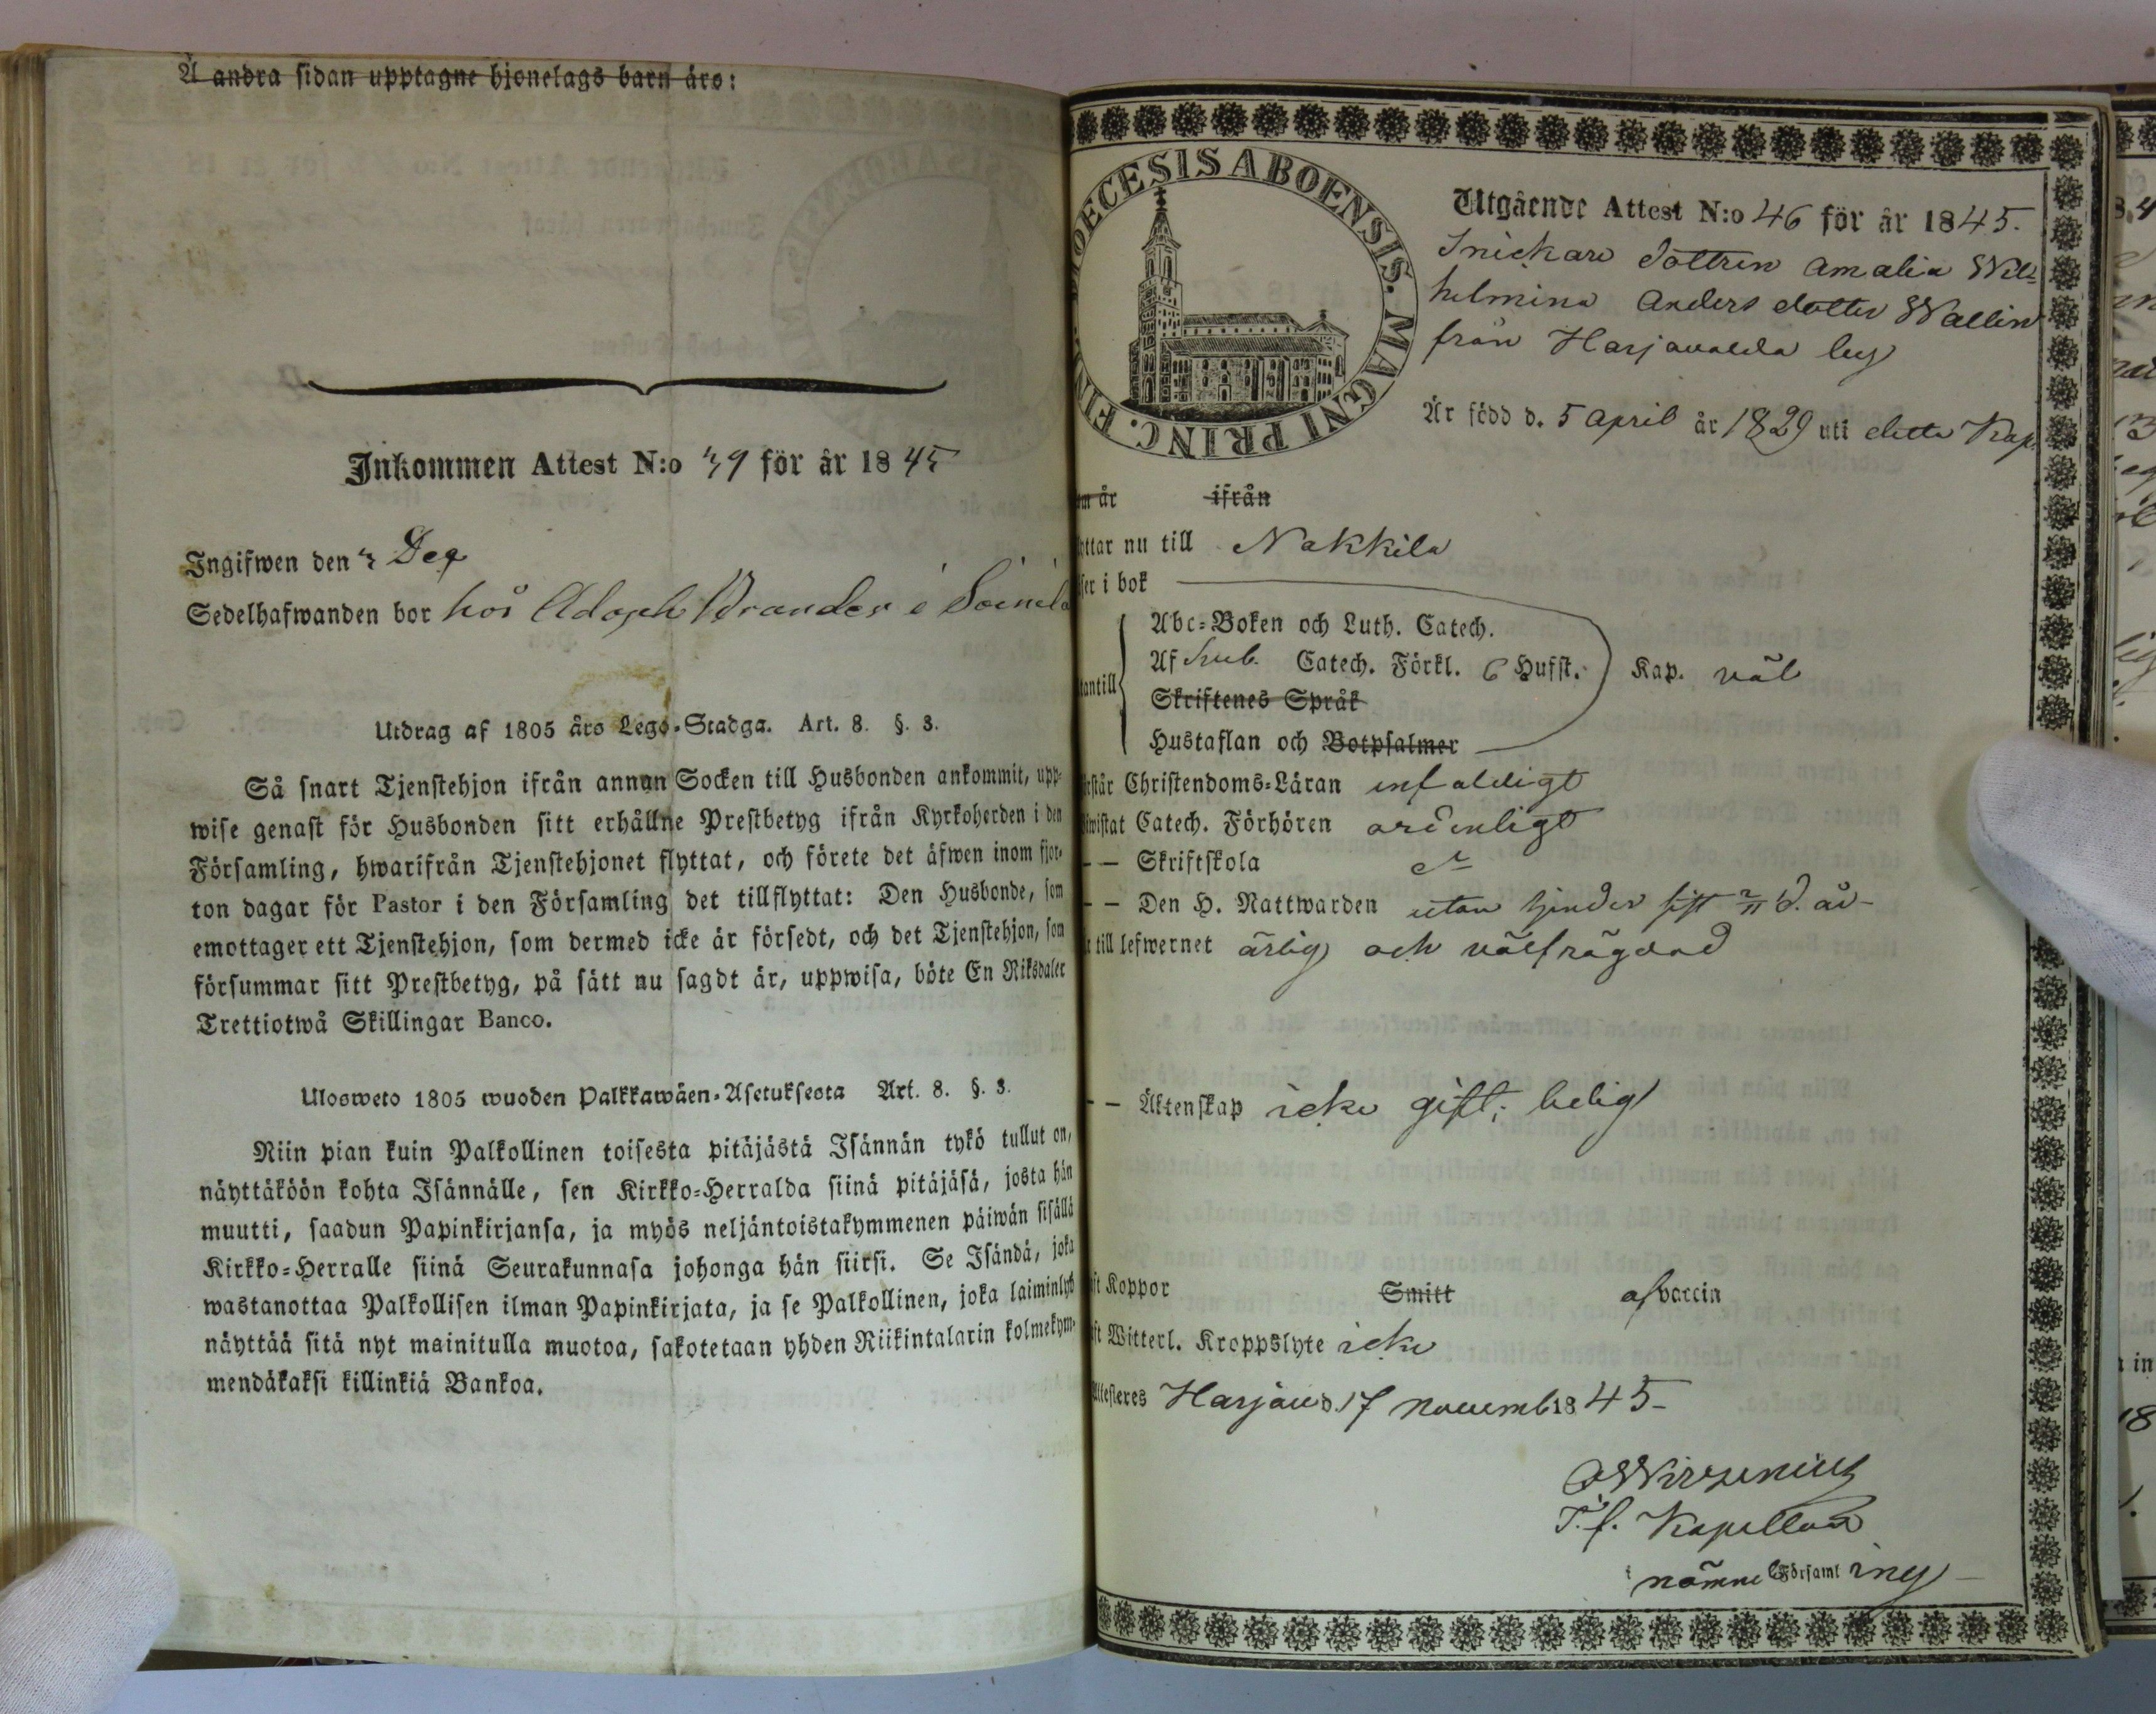 Å andra sidan upptagne hjonelags barn äro:
Inkommen Attest N:o 39 för år 1845
Ingifwen den 3 Dec
Sedelhafwanden bor hos Adolph Brander i
Utdrag af 1805 års Lego-Stadga. Art. 8. §. 3.
Så snart Tjenstehjon ifrån annan Socken till Husbonden ankommit, upp-
wise genast för Husbonden sitt erhållne Prestbetyg ifrån Kyrkoherden i den
Församling, hwarifrån Tjenstehjonet flyttat, och förete det äfwen inom fjor-
ton dagar för Pastor i den Församling det tillflyttat: Den Husbonde, som
emottager ett Tjenstehjon, som dermed icke är försedt, och det Tjenstehjon, som
försummar sitt Prestbetyg, på sätt nu sagdt är, uppwisa, böte En Riksdaler
Trettiotwå Skillingar Banco.
Ulosweto 1805 wuoden Palkkawäen-Asetuksesta Art. 8. §. 3.
Niin pian kuin Palkollinen toisesta pitäjästä Isännän tykö tullut on,
näyttäköön kohta Isännälle, sen Kirkko-Herralda siinä pitäjäsä, josta hän
muutti, saadun Papinkirjansa, ja myös neljäntoistakymmenen päiwän sisällä
Kirkko-Herralle siinä Seurakunnasa johonga hän siirsi. Se Isändä, joka
wastanottaa Palkollisen ilman Papinkirjata, ja se Palkollinen, joka laiminlyö
näyttää sitä nyt mainitulla muotoa, sakotetaan yhden Riikintalarin kolmekym-
mendäkaksi killinkiä Bankoa.
DIOECESIS ABOENSIS. MAGNI PRINC. FIN
Utgående Attest N:o 46 för år 1845.
Snickare dottren Amalia Wil-
helmina Anders dotter Wallin
från Harjavalda by
Är född d. 5 April år 1829 uti detta Kap.
om år ifrån
yttar nu till Nakkila
ser i bok
Abc-Boken och Luth. Catech.
Af Sveb. Catech. Förkl. 6 Hufst. Kap. väl
tantill
Skriftenes Språk
Hustaflan och Botpsalmer
rstår Christendoms-Läran enfaldigt
iwistat Catech. Förhören ordenligt
— — Skriftskola
— — Den H. Nattwarden utan hinder sist 2/11 d. år-
r till lefwernet ärlig och välfrägdad
— — Äktenskap icke gift; ledig
ft Koppor Smitt af vaccin
ft Witterl. Kroppslyte icke
Attesteres Harjav d. 17 Novemb 1845-
T. f. Kapellan
i nämne Församling